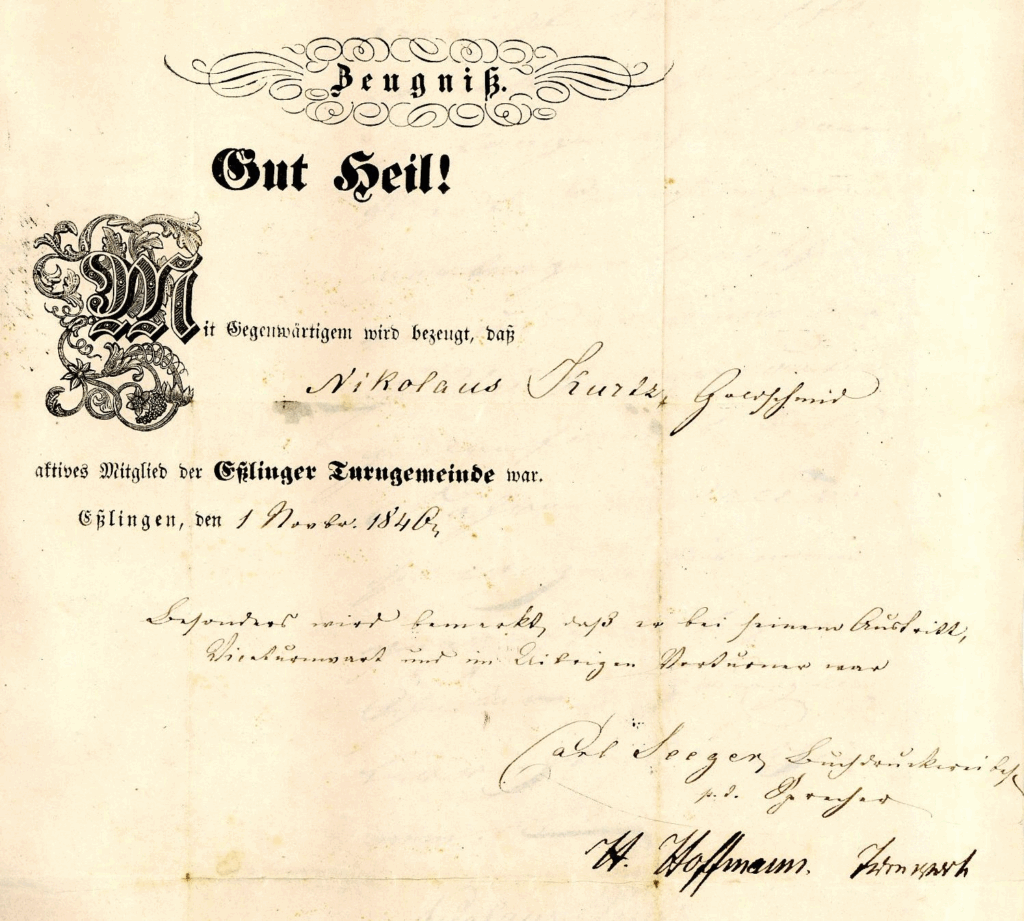 Zeugniß.
Gut Heil!
Mit Gegenwärtigem wird bezeugt, daß
Nikolaus Kurtz, Goldschmid
aktives Mitglied der Eßlinger Turngemeinde war.
Eßlingen, den 1 Novbr. 1846,
Besonders wird bemerkt, daß er bei seinem Austritt,
Viceturnwart und im Uibrigen Vorturner war
Carl Seeger, Buchdruckereibes.
p. t. Sprecher
H. Hoffmann. Turnwart